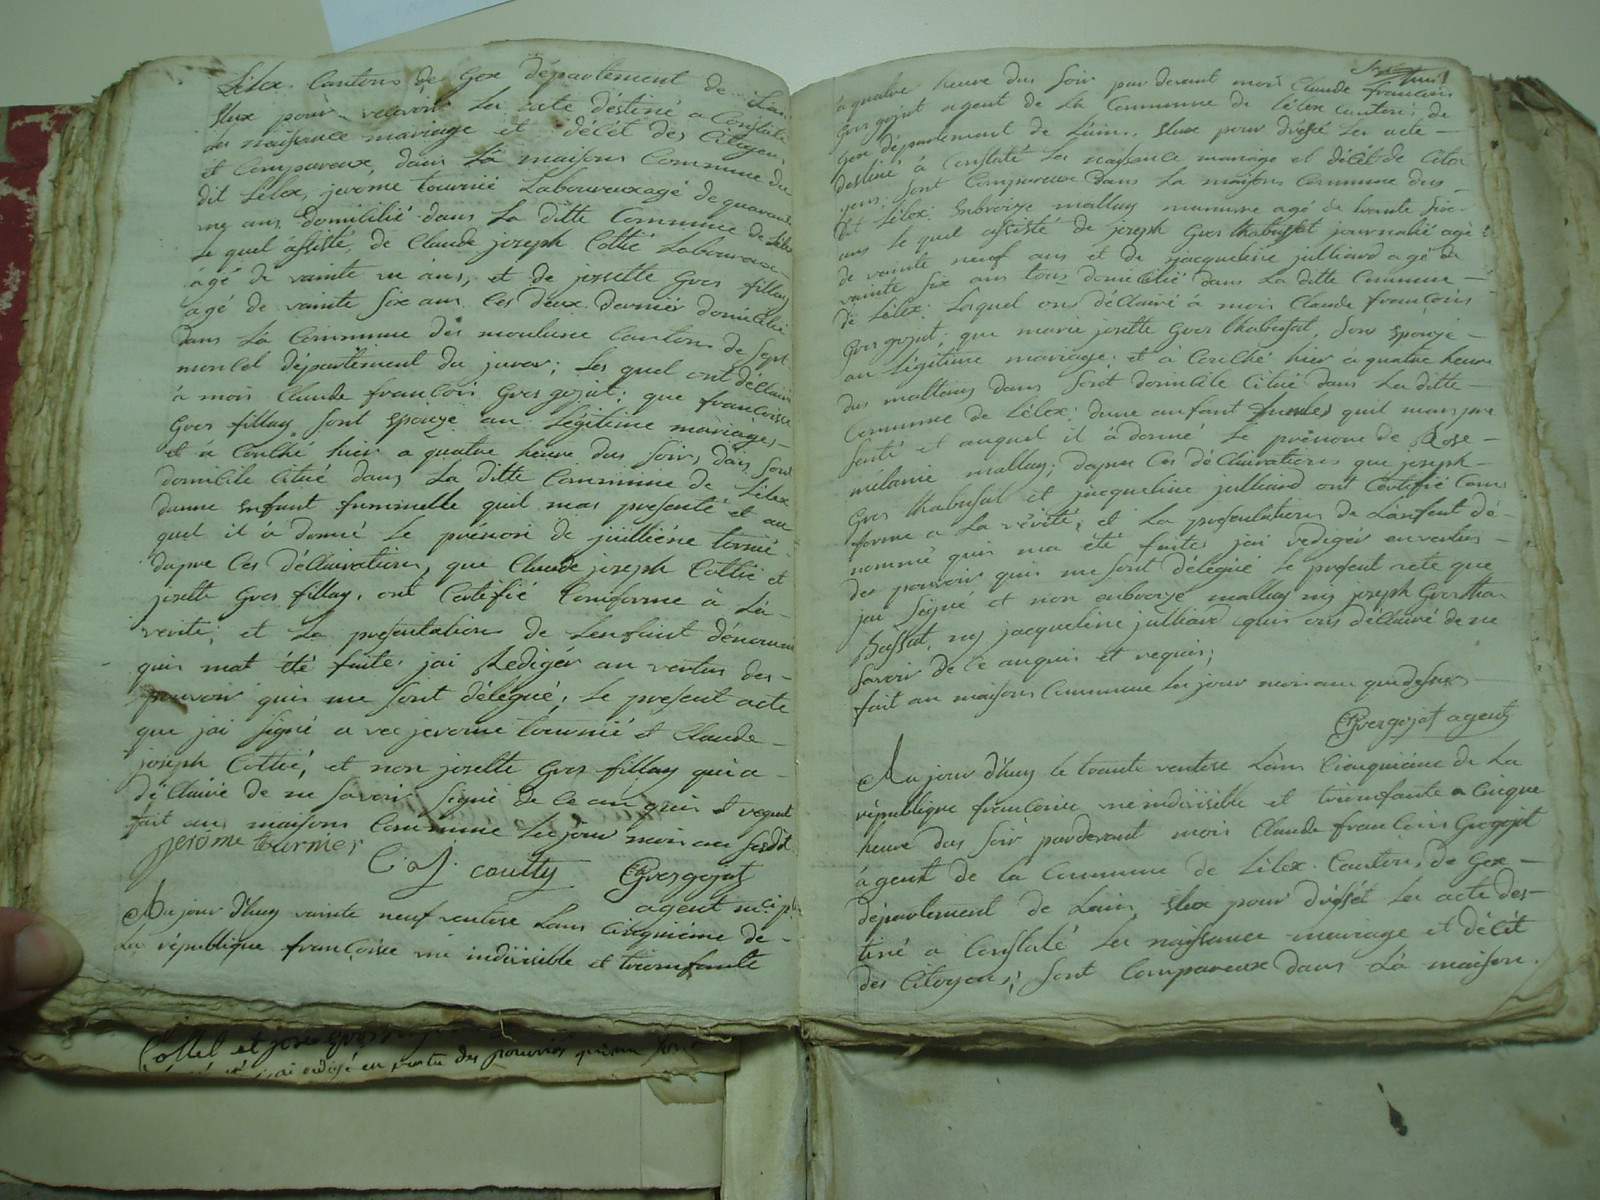 Lélex Cantons de Gex département de Lain
Elux pour recevoir Les acte déstiné a Constaté
Les naissance mariage et décét des Citoyens
Et Compareux, dans La maisons Commune du
dit Lélex, jerome tournié Laboureux agé de quarante
ans domicilié dans La ditte Commune de Lélex
Le quel assisté, de Claude joseph Cottié Laboureux
âgé de vainte un ans, et de josette Gros fillay
agé de vainte six ans Ces deux dernier domicilié
dans La Commune des moulune Cantons de Sept
moncel département du jurar; Les quel ont déClairé
à moi Claude francois Gros gojat; que francoise
Gros fillay Sont Epoize au Légitime mariage,
et à Couché hier a quatre heure dus Soir, dans Son
domicile Citué dans La ditte Commune de Lélex
danne Enfant fummelle quil mas presenté et au
quel il à donné Le prénon de juilliéne tornié
dapre Ces déClairations, que Claude joseph Cottié et
josette Gros fillay, ont Certifié Conforme à La
verite; et La presentations de Lenfant dénommé
quis mat été faite, jai Rediger an vertus des
pouvoir quis me Sont délegué, Le present acte
que jai Signé avec jerome tournié et Claude
joseph Cottié, et non josette Gros fillay qui a
déClairé de ne Savoir Signé de Ce an quis et requit
fait au maisons Commune Les jour mois an Susdit
jeröme turnier
C. J. coutty Grosgojat
agent
Au jour d'huy vainte neuf ventose Lans Cinquiéme de
La république françoise une indivisible et trionfante
à quatre heure dus Soir par devant mois Claude francois
Gros gojat agent de La Commune de Lélex Cantons de
Gex département de Lain, Elux pour dréssé Les acte
destiné à Constaté Les naissance mariage et décét de Cito
yens; Sont Compareux dans La maisons Commune dus
dit Lélex: Enbroize mallay agé de trante
ans Le quel assisté de joseph Gros thabussat journalié agé
de vainte neuf ans et de jacqueline julliard agé de
vainte Six ans tous domicilié dans La ditte Commune
de Lélex: Laquel ons déClairé à mois Claude francois
Gros gojat; que marie josette Gros thabusat, Son Epoize
an Légitime mariage; et à Couché hier a quatre heure
dus mattains dans Sont domicile Citué dans La ditte
Commune de Lélex; dune anfant quil mas pre
senté et auquel il à donné Le prénome de Rose
mélanie mallay; dapre Ces déClairations que joseph
Gros thabusat et jacqueline julliard ont Certifié Con
forme a La vérité, et La presentations de Lanfent dé
nommé quis ma été faite jai rediger anvertus
des pouvoir quis me Sont délegué Le present acte que
jai Signé et non enbroize mallay ny joseph Gros tha
bussat, ny jacqueline julliard quis ons déClairé de ne
Savoir de Ce anquis et requis;
fait au maisons Commune Les jour mois an que desus
Grosgojat agent
Au jour d'huy le trante ventose Lans Cinquiéme de La
république francoise une indivisible et trionfante a Cinque
heure dus Soir pardevant mois Claude francois Grosgojat
agent de La Commune de Lélex Cantons de Gex
département de Lain, Elux pour dréssét Les acte des
tiné a Constaté Les naissance mariage et décét
des Citoyens; Sont Compareux dans La maison
Cottet et
rédigé en vertu des pouvoirs qui me sont